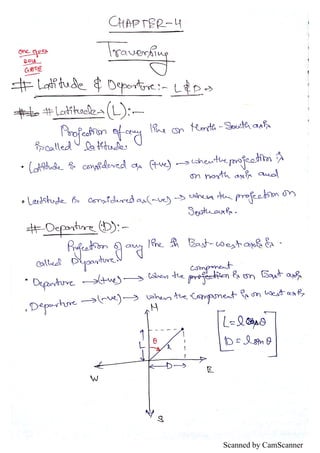 CHAPTER-4
Traversing
one ques
GATE
# Latitude & Departure:- L & D →
# Latitude → (L):-
Projection of any line on North-South axis
is called latitude.
• Latitude is considered as (+ve) → when the projection is
on north axis and
• Latitude is considered as (-ve) → when the projection on
South axis.
# Departure (D):-
Projection of any line in East-West axis is
called Departure.
component
• Departure → (+ve) → when the projection is on East axis
• Departure → (-ve) → when the component is on west axis
N
L = l cos θ
D = l sin θ
θ
L
l
D
W
E
S
Scanned by CamScanner